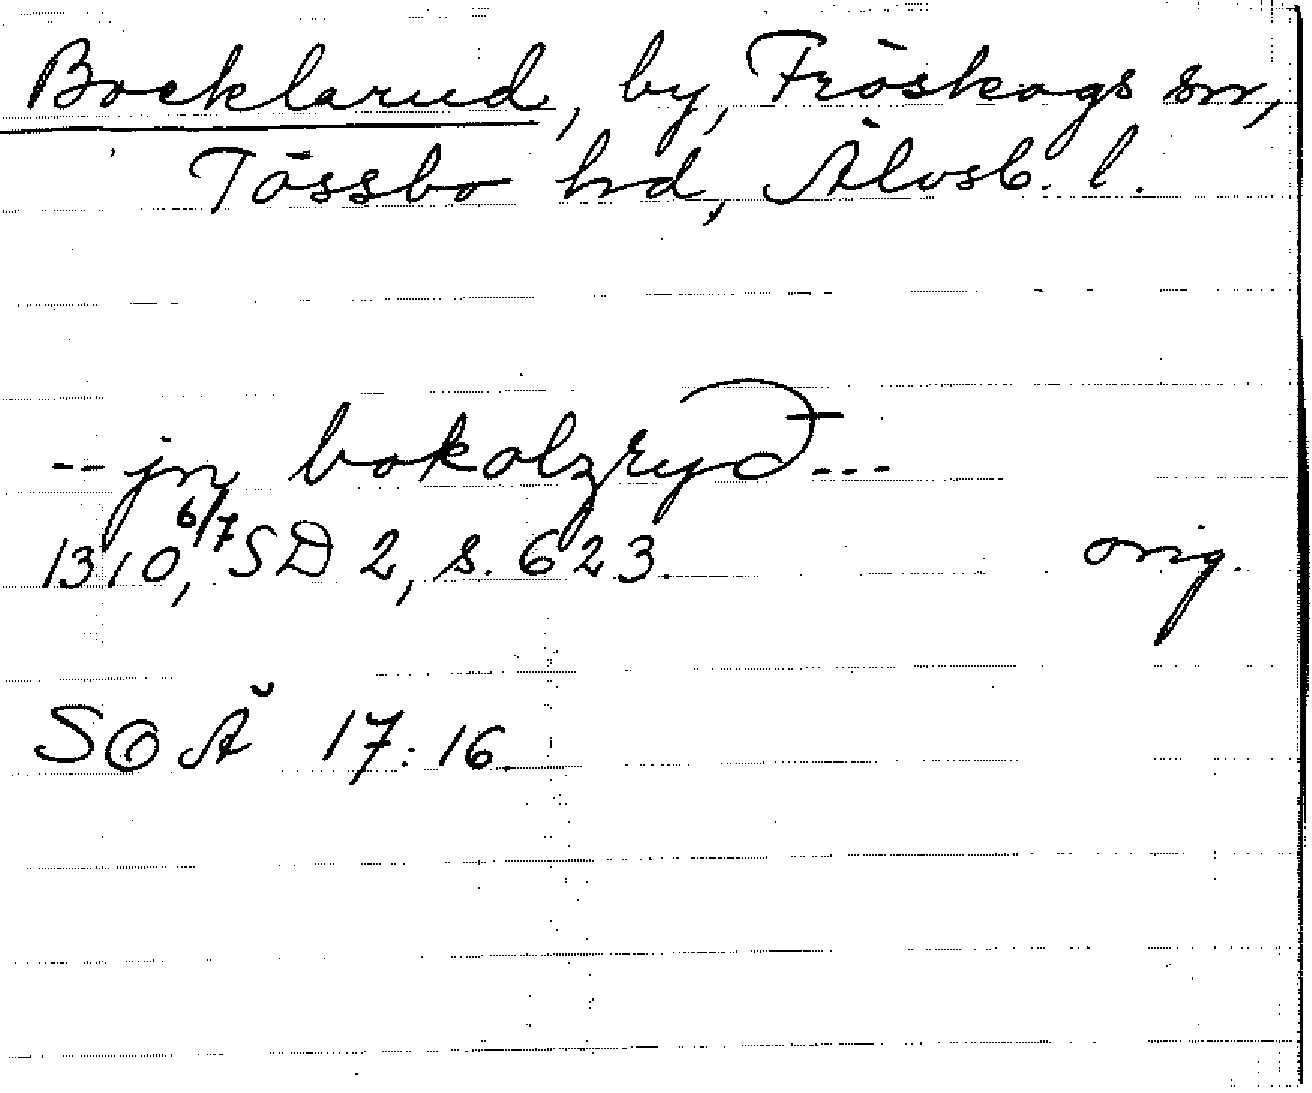 Bocklarud, by, Fröskogs sn,
Tössbo hd, Älvsb. l.
-- jn bokolzryđ ---
1310, 6/7 SD 2, s. 623. orig.
SOÄ 17:16.